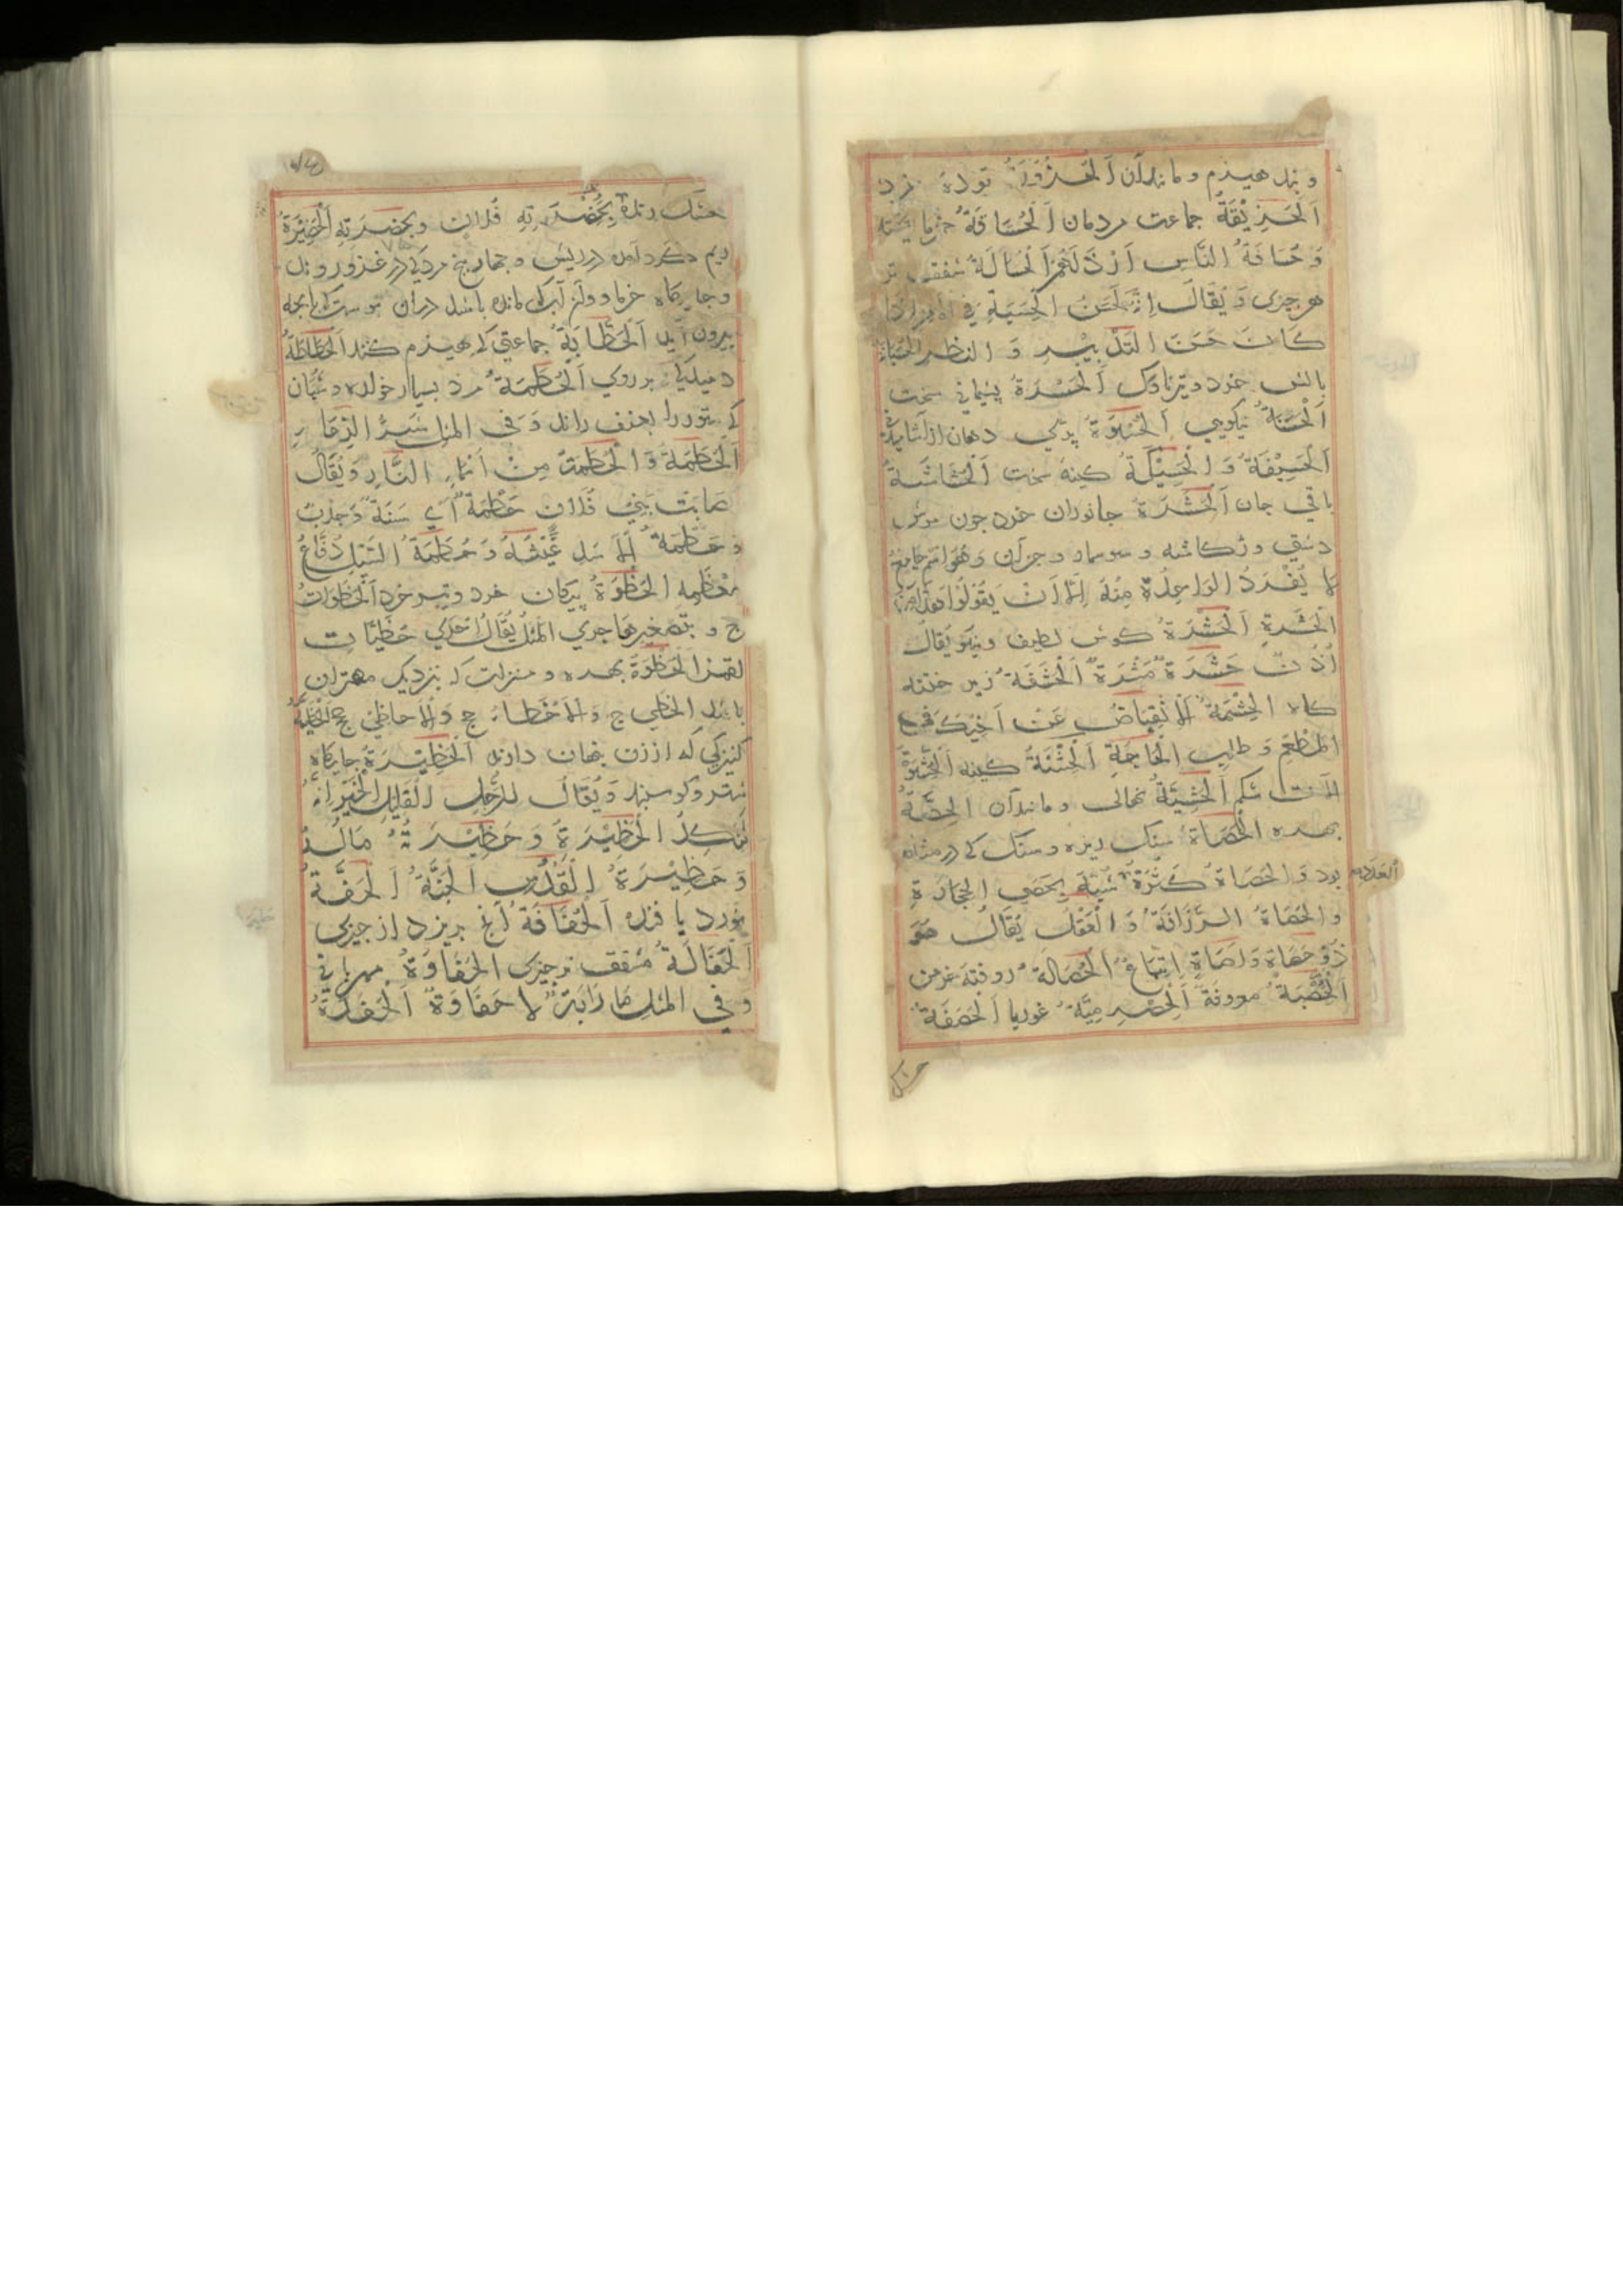 و بند هیذم و مانند آن اَلْحُزْوَّرَةُ تودهٔ خرد
اَلْحَزِیْقَةُ جماعت مردمان اَلْحُسَافَةُ خرما
وَ حُسَافَةُ النَّاسِ اَرْذَلُهُمْ اَلْحُسَالَةُ
هر چیزی وَ یُقَالُ اِنَّهُ لَحَسَنُ الْحِسْبَةِ فِی الْاَمْرِ اِذَا
کَانَ حَسَنَ التَّدْبِیْرِ وَ النَّظَرِ
بالش خرد و تیر ناوک اَلْحَسْرَةُ پشیمانی سخت
اَلْحَسَنَةُ نیکویی اَلْحُسْوَةُ پری دهان از آشامیدنی
اَلْحَسِیْفَةُ وَ الْحَسِیْکَةُ کینهٔ سخت اَلْحُشَاشَةُ
باقی جان اَلْحَشَرَةُ جانوران خرد چون موش
دشتی و و سوسمار و جز آن وَ هُوَ اسْمٌ جَامِعٌ
لَا یُفْرَدُ الْوَاحِدُ مِنْهُ اِلَّا اَنْ یَقُوْلُوْا هٰذَا مِنَ
الْحَشَرَةِ اَلْحَشْرَةُ کوش لطیف و نیکو یُقَالُ
اُذُنٌ حَشْرَةٌ مَشْرَةٌ اَلْحَشَفَةُ زبر ختنه
کاه اَلْحِشْمَةُ اَلْاِنْقِبَاضُ عَنْ اَخِیْکَ فِی
الْمَطْعَمِ وَ طَلَبِ الْحَاجَةِ اَلْحِشْنَةُ کینه
شکم اَلْحَشِیَّةُ نهالی و مانند آن اَلْحِصَّةُ
بهره اَلْحَصَاةُ سنک ریزه و سنک کی در مثانه
بود وَ الْحَصَاةُ کَثْرَةٌ شُبِّهَ بِحَصَی الْحِجَارَةِ
وَ الْحَصَاةُ الرَّزَانَةُ وَ الْعَقْلُ یُقَالُ هُوَ
ذُوْ حَصَاةٍ وَ اَصَاةٍ اِتْبَاعٌ اَلْحُصَالَةُ روفتهٔ خرمن
اَلْحَصْبَةُ معروفة اَلْحِصْرِمِیَّةُ غوربا اَلْحَصَفَةُ
خشک
خشک رنده بِحَضْرَتِهِ فُلَانٍ و بحضرته اَلْحَضِیْرَةُ
ریم کرد آمده در ریش و چهار پنج مرد کی در غزو روند
و جایکاه خرما و
بیرون آید اَلْحَطَّابَةُ جماعتی کی هیذم کنند اَلْحَطَاطَةُ
بر روی اَلْحُطَمَةُ مرد بسیار خواره و شبان
کی ستور را بعنف راند وَ فِی الْمَثَلِ شَرُّ الرِّعَاءِ
الْحُطَمَةُ وَ الْحُطَمَةُ مِنْ اَسْمَاءِ النَّارِ وَ یُقَالُ
اَصَابَتْ بَنِیْ فُلَانٍ حَطْمَةٌ اَیْ سَنَةٌ وَ جَدْبٌ
وَ حَطْمَةُ الْاَسَدِ عَیْثُهُ وَ حَطْمَةُ السَّیْلِ دُفَّاعُ
مُعْظَمِهِ اَلْحَظْوَةُ پیکان خرد و تیر خرد اَلْحَظَوَاتُ
ج و بتصغیرها جری المثل یُقَالُ اِحْدَی حُظَیَّاتِ
لُقْمٰنَ اَلْحُظْوَةُ بهره و منزلت که بنزدیک مهتران
باشد اَلْحَظِیُّ ج وَ الْاَحْظَاءُ ج وَ الْاَحَاظِیْ جج اَلْحَظِیَّةُ
کنیزکی که از زن نهان دارند اَلْحَظِیْرَةُ جایکاه
شتر و کوسبند وَ یُقَالُ لِلرَّجُلِ الْقَلِیْلِ الْخَیْرِ اِنَّهُ
لَنَکِدُ الْحَظِیْرَةِ وَ حَظِیْرَتُهُ مَالُهُ
وَ حَظِیْرَةُ الْقُدُسِ اَلْجَنَّةُ اَلْحَفَّةُ
نورد بافنده اَلْحُفَافَةُ آنچ بریزد از چیزی
اَلْحُفَالَةُ چیزی اَلْحَفَاوَةُ مهربانی
وَ فِی الْمَثَلِ مَأْرَبَةٌ لَا حَفَاوَةٌ اَلْحَفَدَةُ